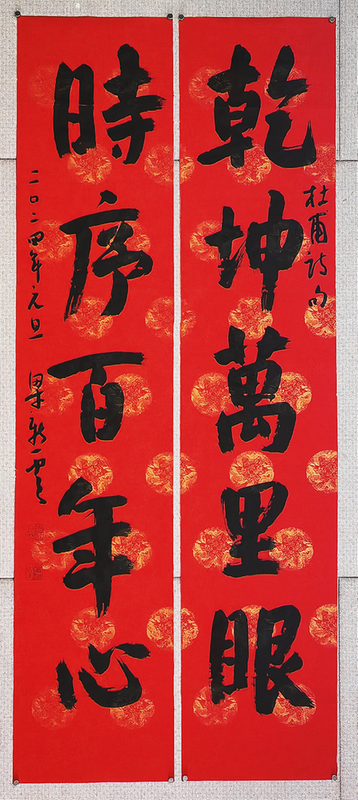 乾坤萬里眼
杜甫詩句
時序百年心
二〇二四年元旦
梁新雲